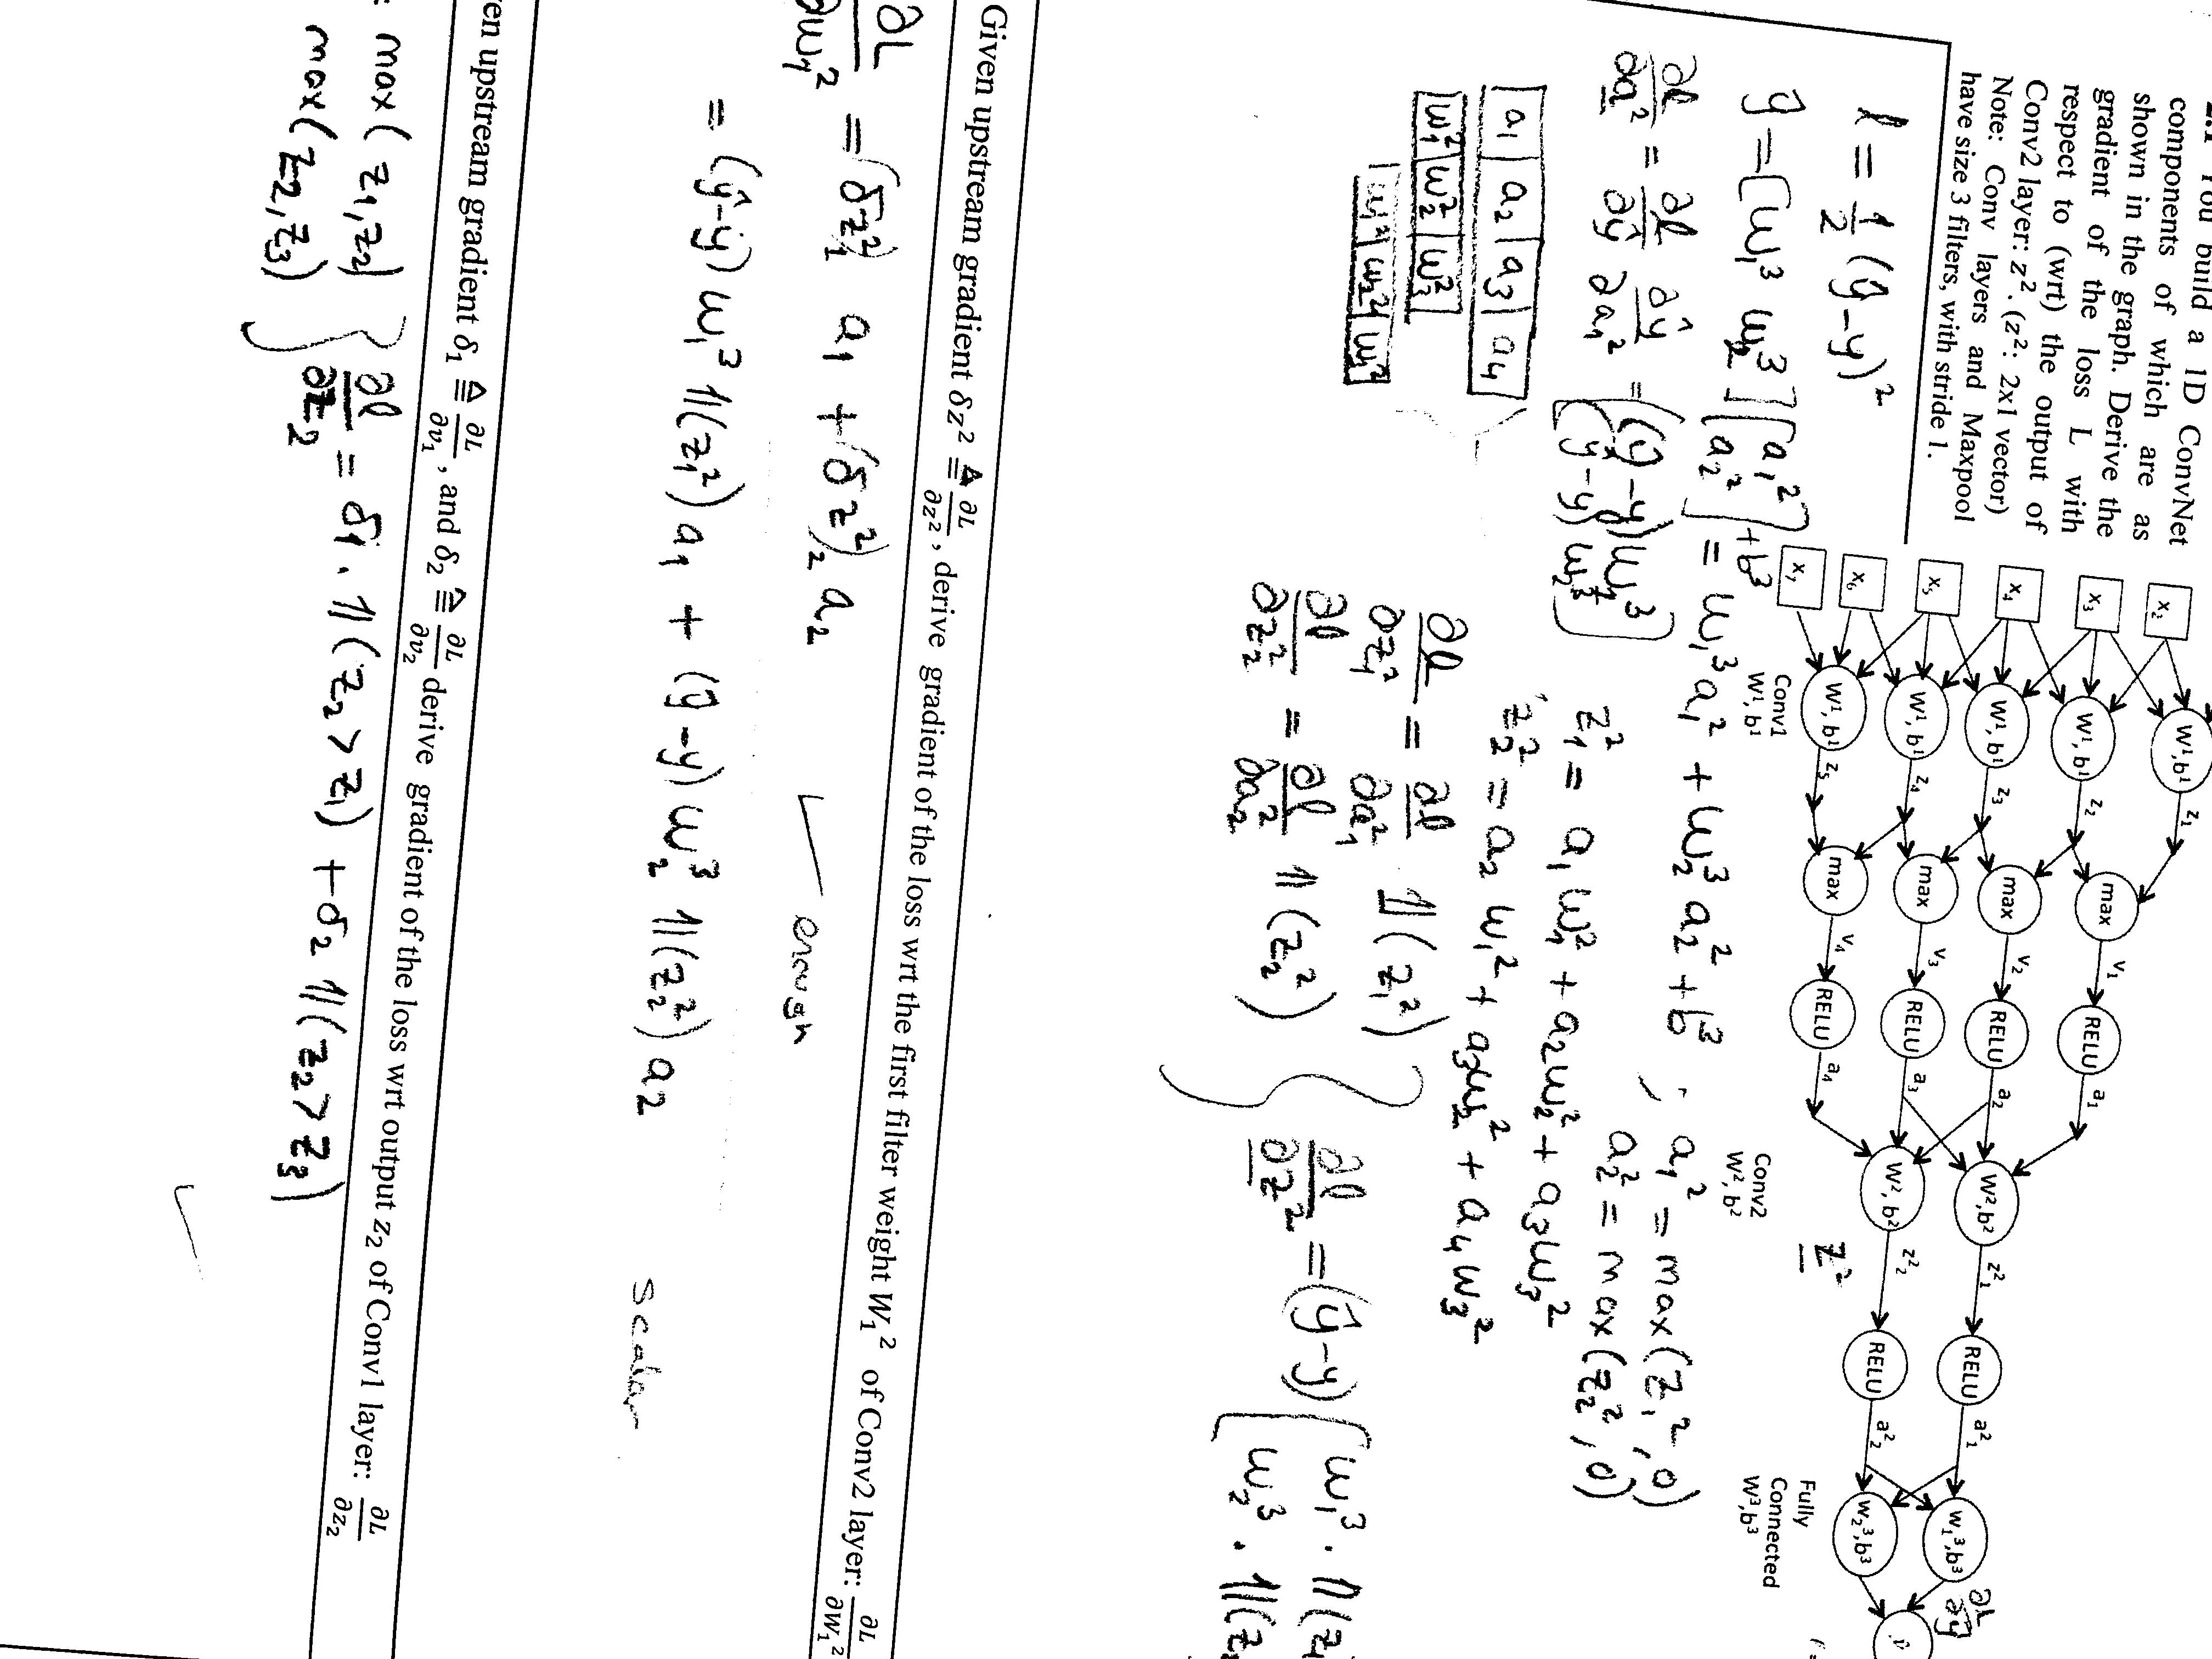 You build a 1D ConvNet
components of which are as
shown in the graph. Derive the
gradient of the loss L with
respect to (wrt) the output of
Conv2 layer: z². (z²: 2x1 vector)
Note: Conv layers and Maxpool
have size 3 filters, with stride 1.
x₂ W¹,b¹ z₁
x₃ W¹,b¹ z₂ max v₁ RELU a₁
x₄ W¹,b¹ z₃ max v₂ RELU a₂ W²,b² z²₁ RELU a²₁ w₁³,b³ ∂L/∂ŷ
x₅ W¹,b¹ z₄ max v₃ RELU a₃ W²,b² z²₂ RELU a²₂ w₂³,b³
x₆ W¹,b¹ z₅ max v₄ RELU a₄
x₇
Conv1
W¹, b¹
Conv2
W², b²
z²
Fully
Connected
W³,b³
l = 1/2 (ŷ-y)²
ŷ = [w₁³ w₂³] [a₁² a₂²] + b³ = w₁³a₁² + w₂³a₂² + b³ , a₁² = max(z₁², 0)
a₂² = max(z₂², 0)
∂l/∂a² = ∂l/∂ŷ ∂ŷ/∂a₁² = [(ŷ-y)w₁³
(ŷ-y)w₂³]
z₁² = a₁w₁² + a₂w₂² + a₃w₃²
z₂² = a₂w₁² + a₃w₂² + a₄w₃²
a₁ a₂ a₃ a₄
w₁² w₂² w₃²
w₁² w₂² w₃²
∂l/∂z₁² = ∂l/∂a₁² 𝟙(z₁²)
∂l/∂z₂² = ∂l/∂a₂² 𝟙(z₂²)
∂l/∂z² = (ŷ-y) [w₁³ · 𝟙(z₁
w₂³ · 𝟙(z₂
Given upstream gradient δz² ≜ ∂L/∂z², derive gradient of the loss wrt the first filter weight W₁² of Conv2 layer: ∂L/∂W₁²
∂L/∂w₁² = (δz²)₁ a₁ + (δz²)₂ a₂ enough
= (ŷ-y) w₁³ 𝟙(z₁²) a₁ + (ŷ-y) w₂³ 𝟙(z₂²) a₂ scalar
ven upstream gradient δ₁ ≜ ∂L/∂v₁, and δ₂ ≜ ∂L/∂v₂ derive gradient of the loss wrt output z₂ of Conv1 layer: ∂L/∂z₂
: max(z₁,z₂)
max(z₂,z₃)
∂l/∂z₂ = δ₁ · 𝟙(z₂ > z₁) + δ₂ 𝟙(z₂ > z₃)